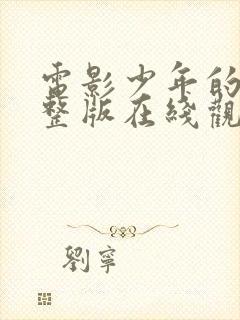 電影少年的
整版在綫觀
劉寧